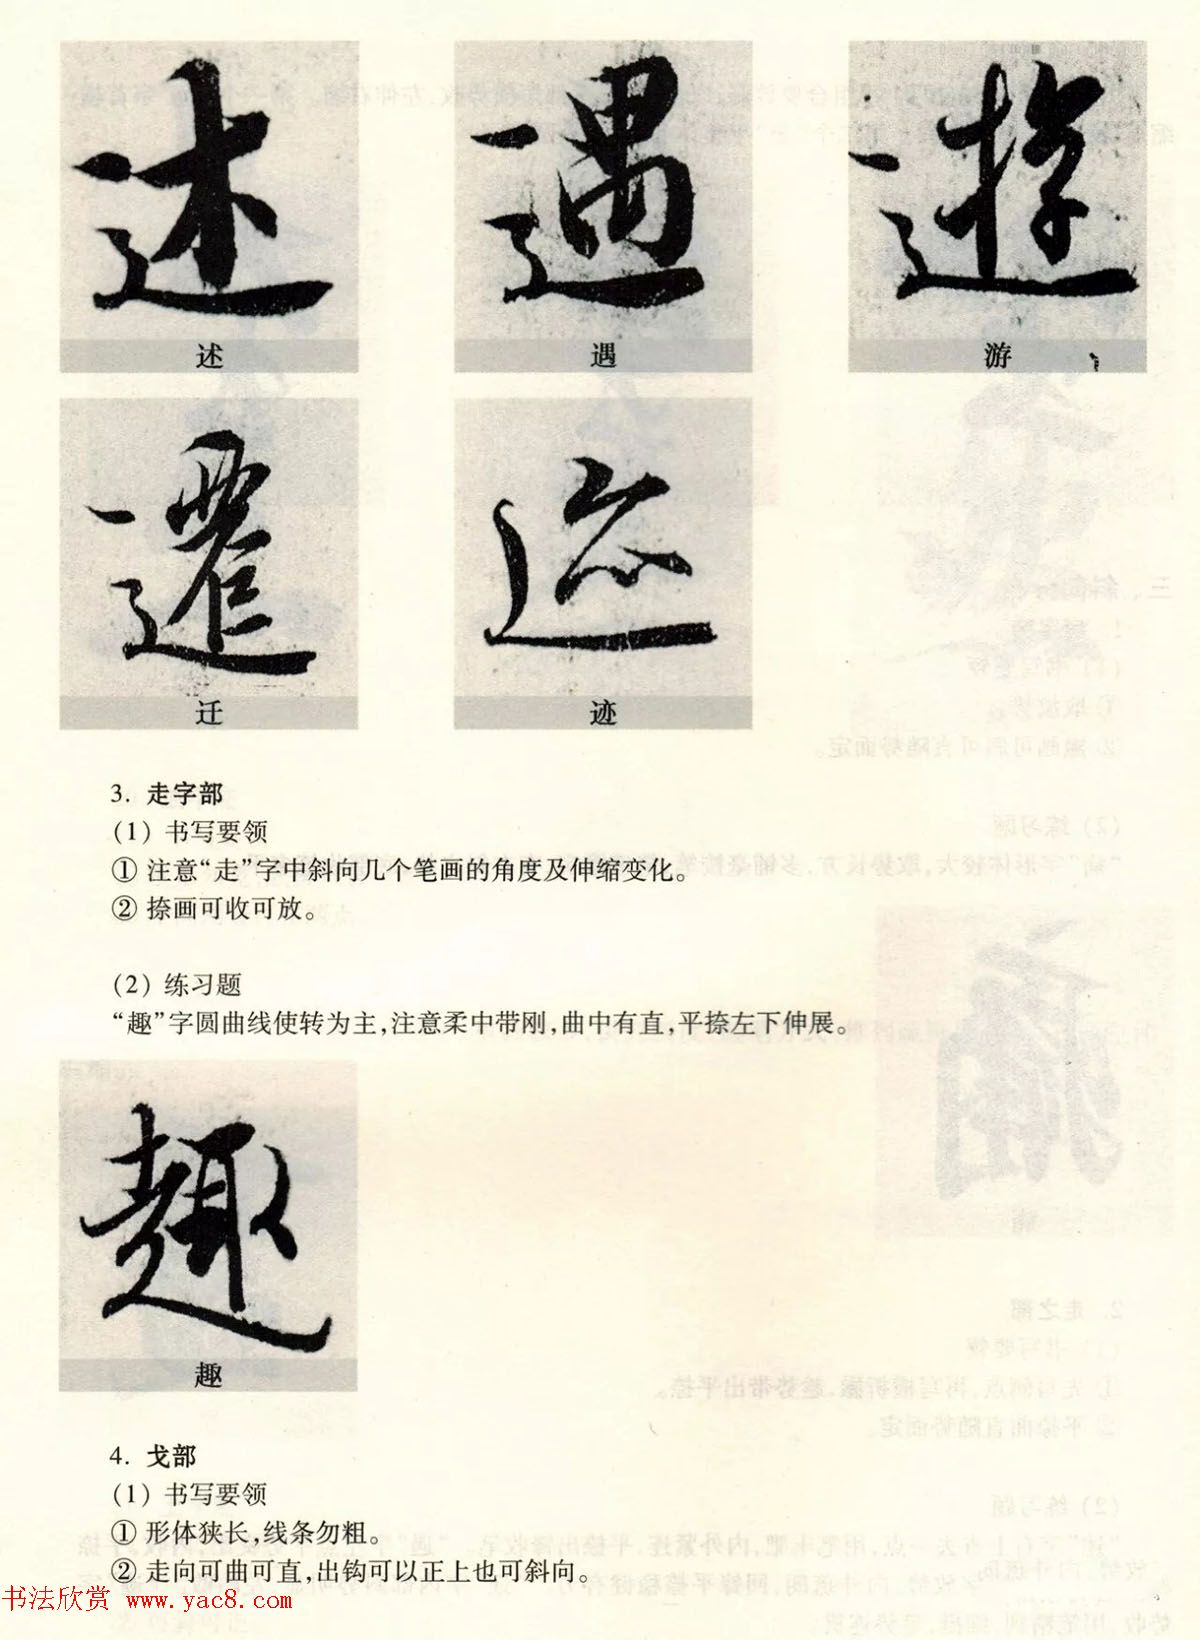 述 遇 游
迁 迹
3. 走字部
(1) 书写要领
① 注意“走”字中斜向几个笔画的角度及伸缩变化。
② 捺画可收可放。
(2) 练习题
“趣”字圆曲线使转为主,注意柔中带刚,曲中有直,平捺左下伸展。
趣
4. 戈部
(1) 书写要领
① 形体狭长,线条勿粗。
② 走向可曲可直,出钩可以正上也可斜向。
书法欣赏 www.yac8.com